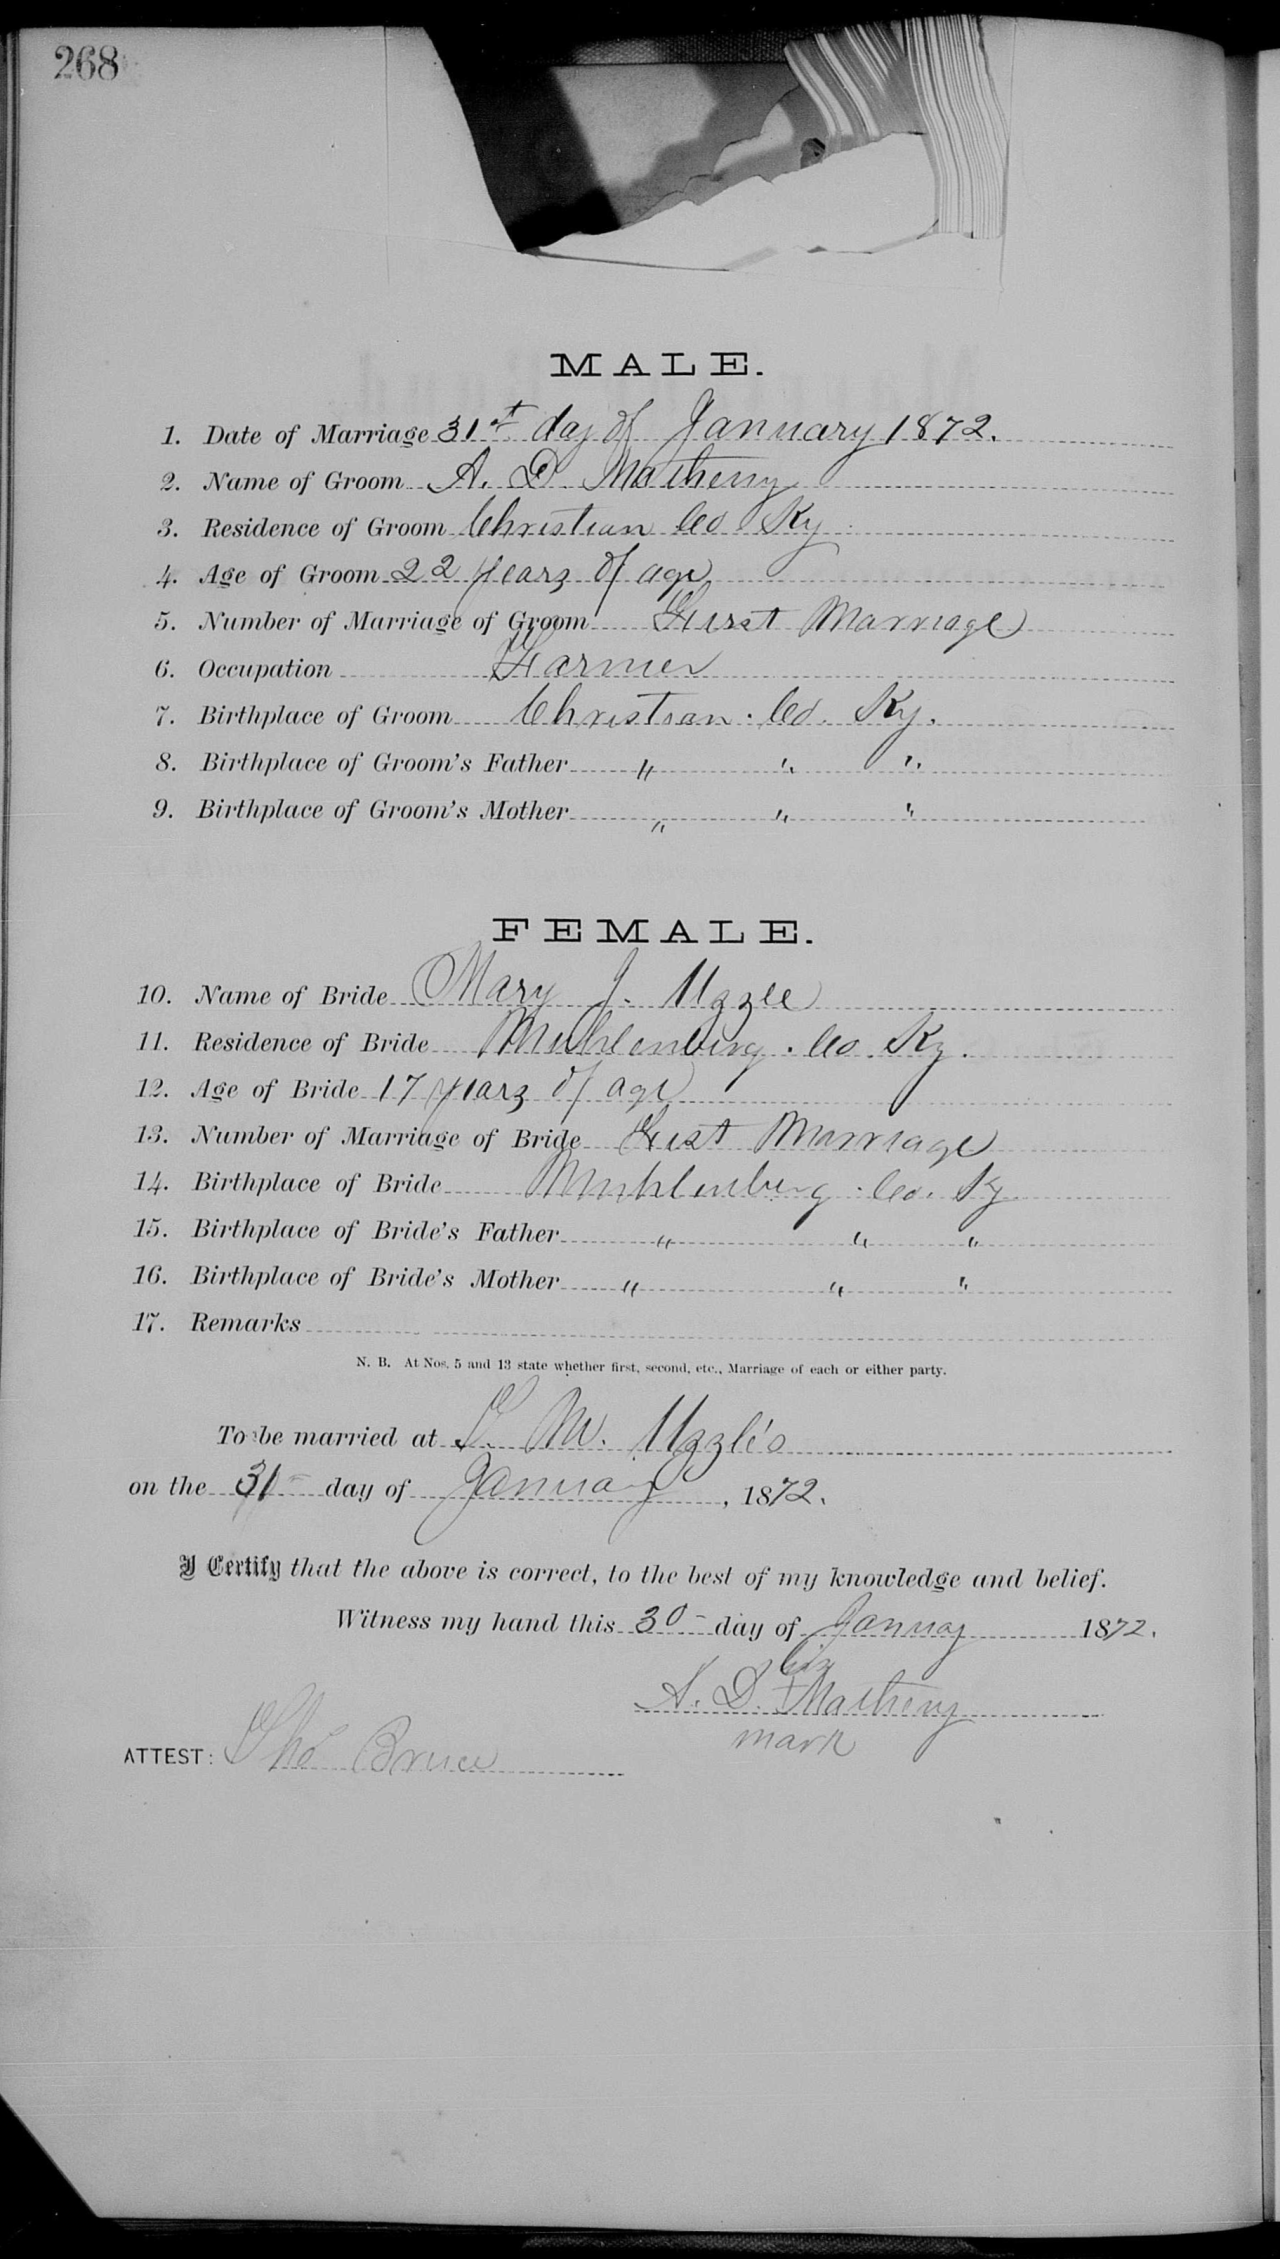 268
MALE.
1. Date of Marriage 31st day of January 1872.
2. Name of Groom A. D. Matheny
3. Residence of Groom Christian Co Ky
4. Age of Groom 22 years of age
5. Number of Marriage of Groom First Marriage
6. Occupation Farmer
7. Birthplace of Groom Christian Co. Ky.
8. Birthplace of Groom's Father " " "
9. Birthplace of Groom's Mother " " "
FEMALE.
10. Name of Bride Mary J. Uzzle
11. Residence of Bride Muhlenburg Co Ky.
12. Age of Bride 17 years of age
13. Number of Marriage of Bride First Marriage
14. Birthplace of Bride Muhlenburg Co. Ky
15. Birthplace of Bride's Father " " "
16. Birthplace of Bride's Mother " " "
17. Remarks
N. B. At Nos. 5 and 13 state whether first, second, etc., Marriage of each or either party.
To be married at T. M. Uzzle's
on the 31 day of January, 1872.
I Certify that the above is correct, to the best of my knowledge and belief.
Witness my hand this 30 day of January 1872.
his
A. D. + Matheny
mark
ATTEST: Tho Bruce